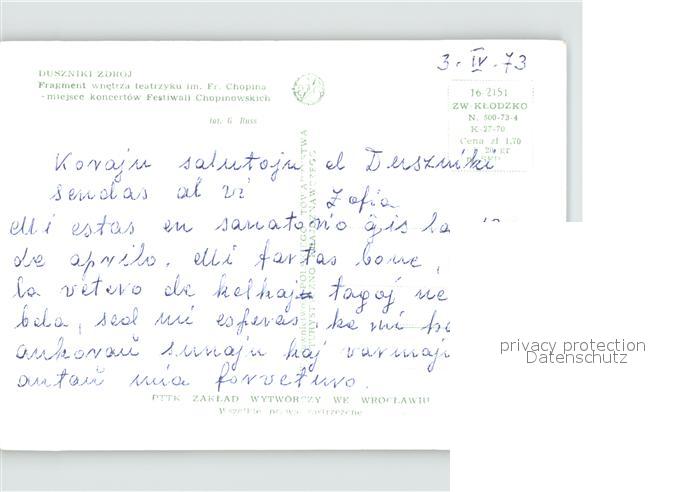 3. IV. 73
DUSZNIKI ZDRÓJ
Fragment wnętrza teatrzyku im. Fr. Chopina
- miejsce koncertów Festiwali Chopinowskich
fot. G. Russ
16-2151
ZW-KŁODZKO
N. 500-73-4
K-27-70
Cena zł 1,70
20 gr
Korajn salutojn el Duszniki
sendas al vi Zofia
Mi estas en sanatorio ĝis la
de aprilo. Mi fartas bone,
la vetero de kelkaj tagoj ne
bela, sed mi esperas, ke mi
ankoraŭ sunajn kaj varmajn
antaŭ mia forveturo.
PTTK ZAKŁAD WYTWÓRCZY WE WROCŁAWIU
Wszelkie prawa zastrzeżone
privacy protection
Datenschutz